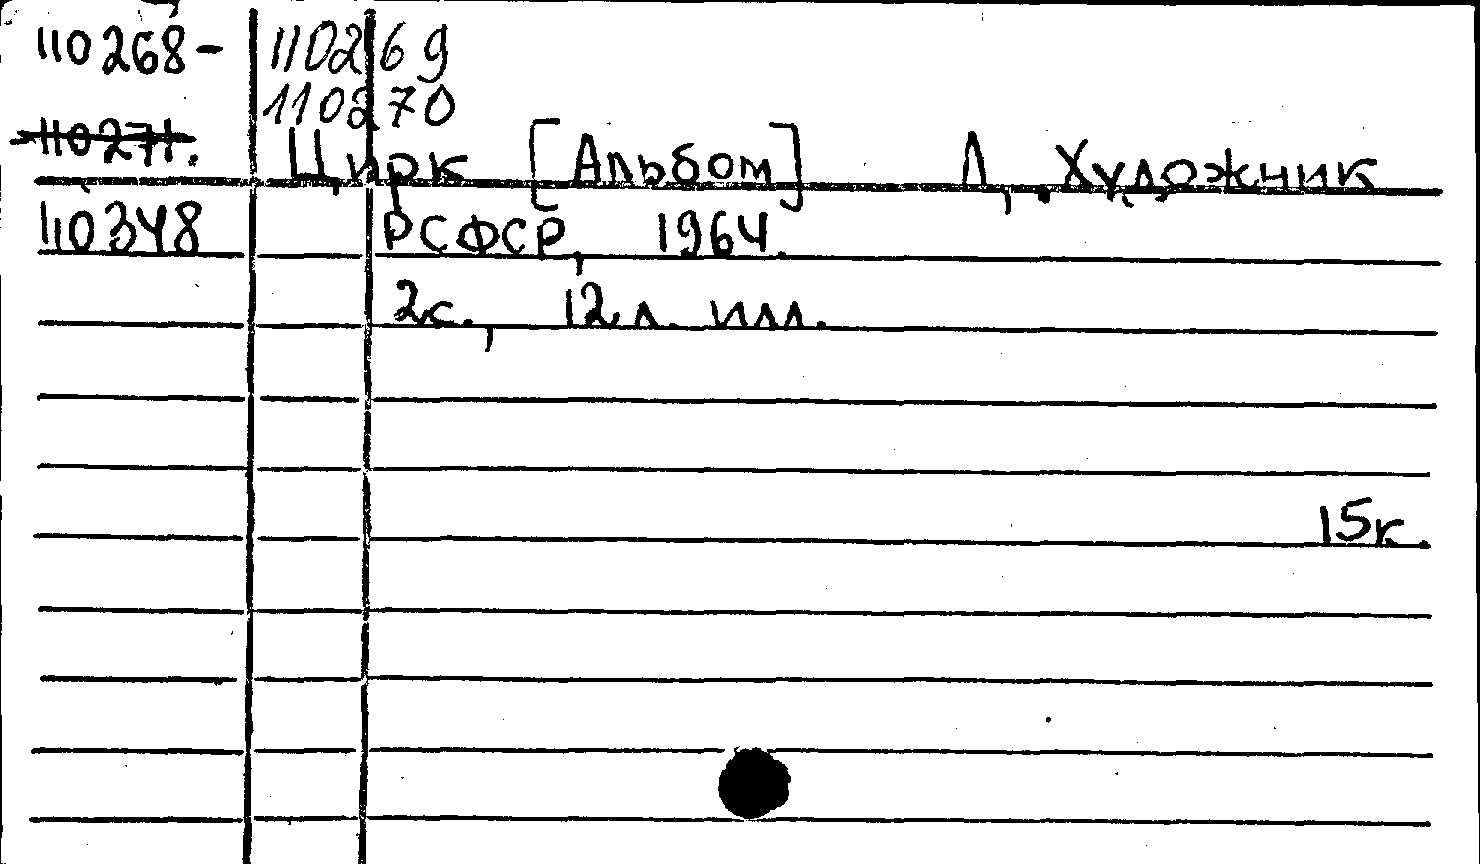 110268- 110269
110270
110271.
Цирк [Альбом] Л., Художник
110348 РСФСР, 1964.
2с., 12л. илл.
15к.